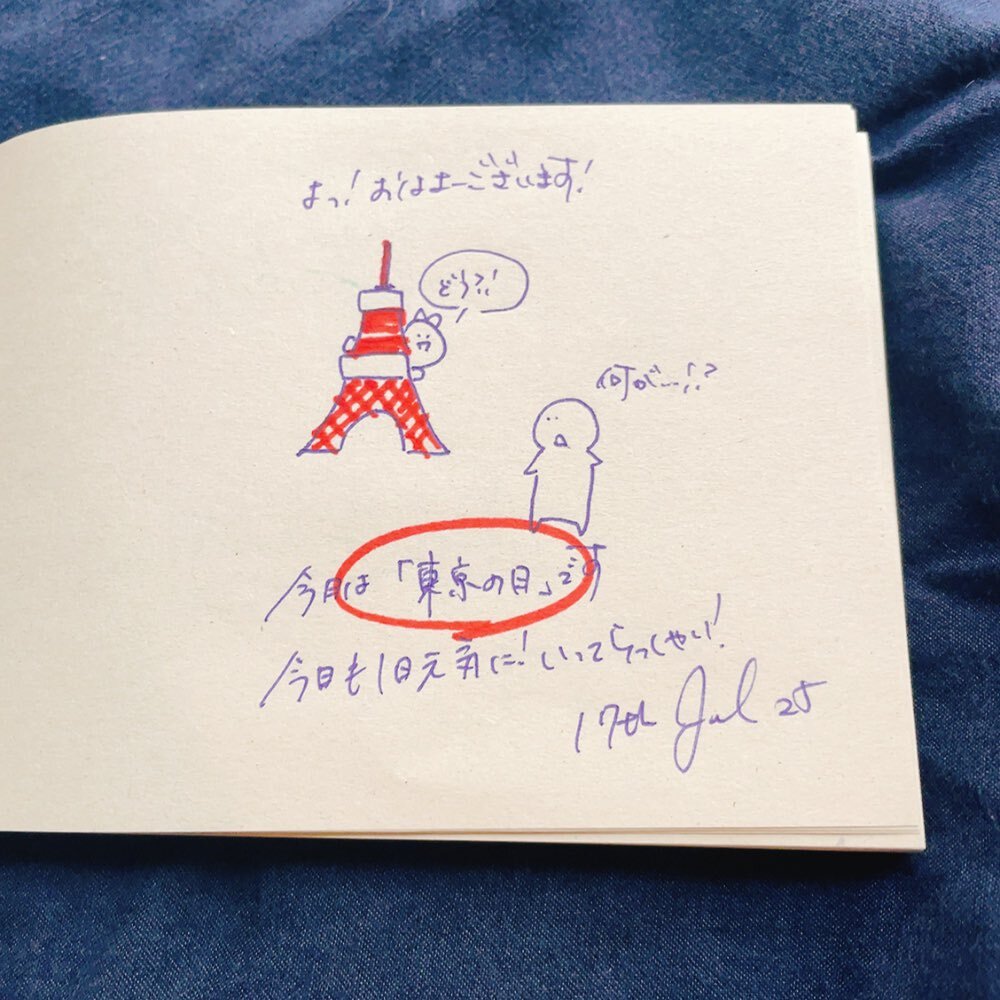 よっ!おはよーございます!
どう?!
何が…!?
今日は「東京の日」です
今日も1日元気に!いってらっしゃい!
17th Jul 25